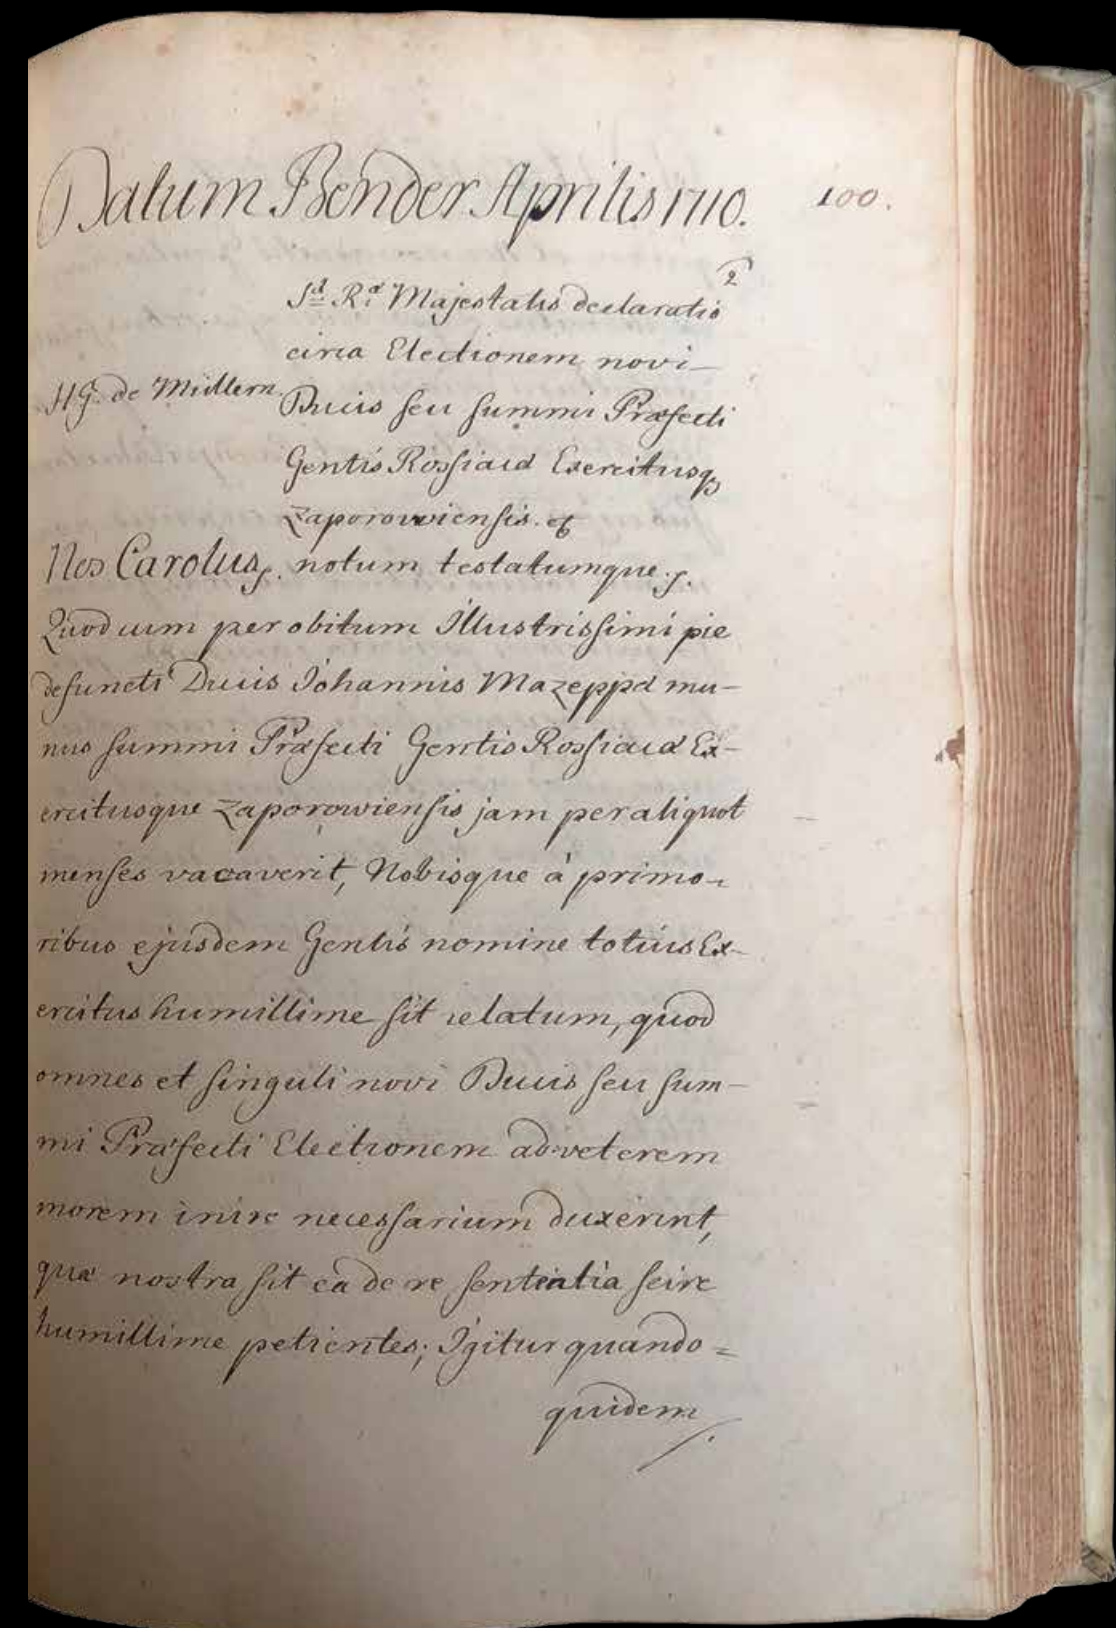 Datum Bender Aprilis 1710.
100.
2
S.æ R.æ Majestatis declaratio
circa Electionem novi
H G. de Müllern.
Ducis seu summi Præfecti
Gentis Rossiacæ Exercitusq
Zaporowiensis.
Nos Carolus notum testatumque
Quod cum per obitum Illustrissimi pie
defuncti Ducis Johannis Mazeppæ mu-
nus summi Præfecti Gentis Rossiacæ Ex-
ercitusque Zaporowiensis jam per aliquot
menses vacaverit, Nobisque à primo-
ribus ejusdem Gentis nomine totius Ex-
ercitus humillime sit relatum, quod
omnes et singuli novi Ducis seu sum-
mi Præfecti Electionem ad veterem
morem inire necessarium duxerint,
quæ nostra sit ea de re sententia scire
humillime petientes; Igitur quando=
quidem